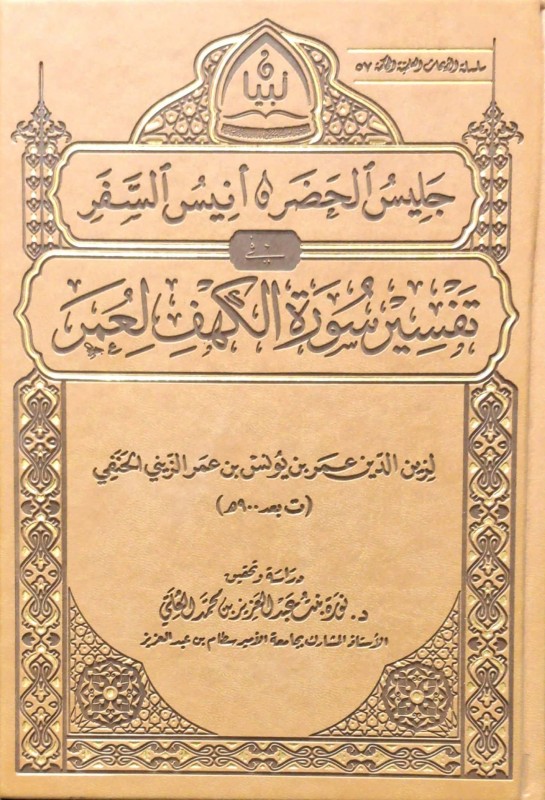 سلسلة الأبحاث العلمية المحكمة ٥٧
لبيان
جَلِيسُ الحَضَرِ، أَنِيسُ السَّفَرِ
في
تَفْسِيرِ سُورَةِ الكَهْفِ لِعُمَرَ
لزين الدين عمر بن يونس بن عمر الزيني الحنفي
(ت بعد ٩٠٠هـ)
دراسة وتحقيق
د. نورة بنت عبد العزيز بن محمد العلي
الأستاذ المشارك بجامعة الأمير سطام بن عبد العزيز